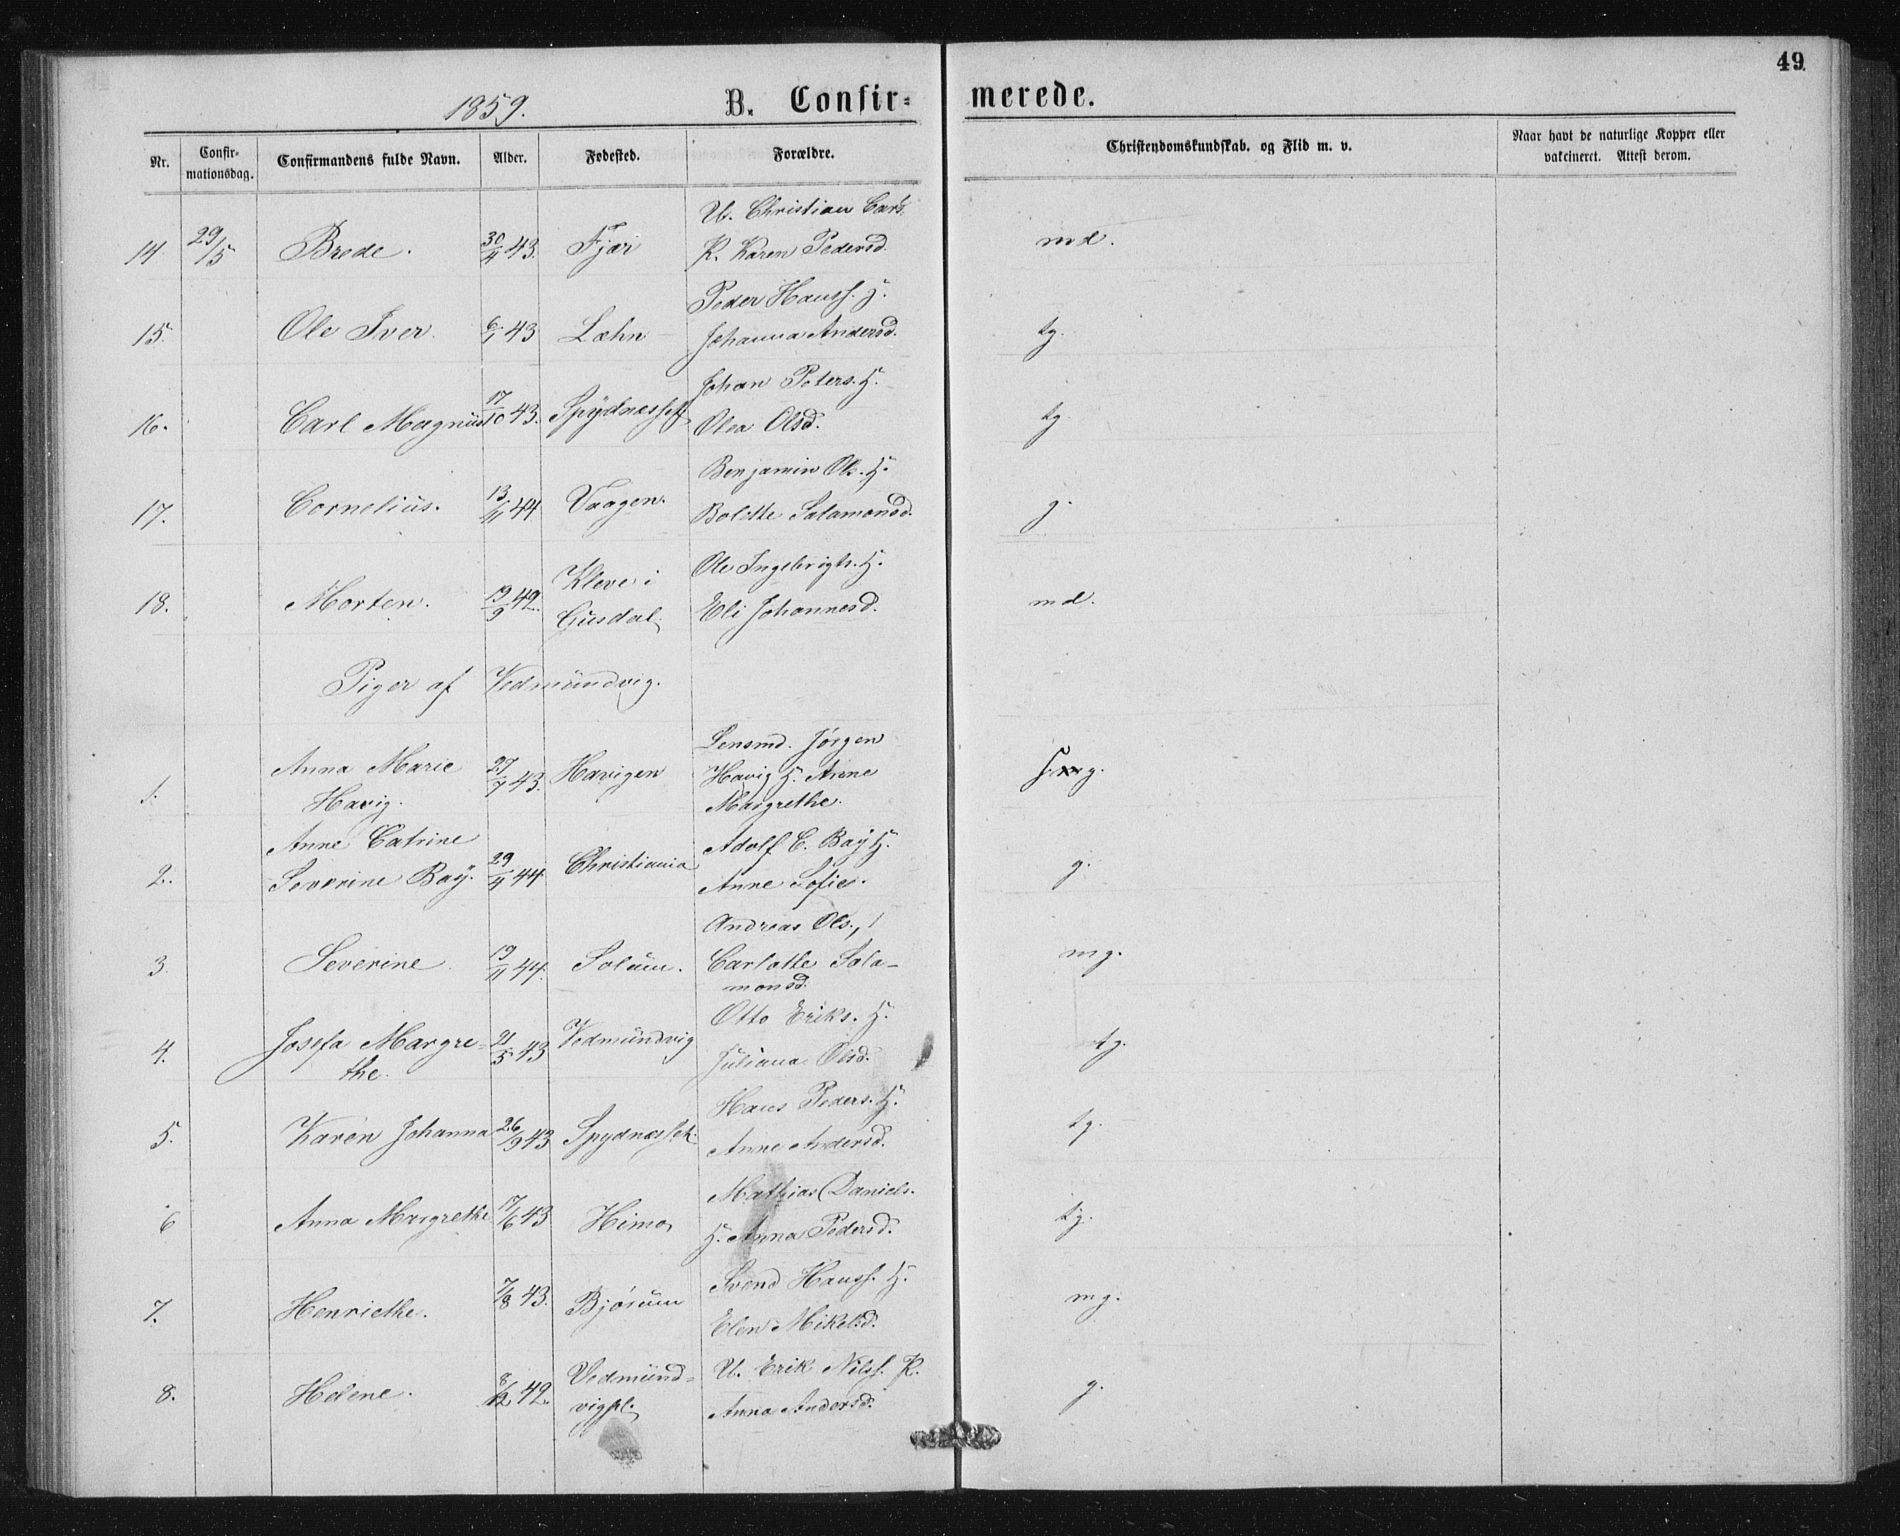 49
1859.
B. Confir= merede.
Nr. Confir= mationsdag. Confirmandens fulde Navn. Alder. Fødested. Forældre. Christendomskundskab. og Flid m. v. Naar havt de naturlige Kopper eller vakcineret. Attest derom.
U. Christian Carls.
14. 29/5 Brede. 30/4 43. Fjær K. Karen Pedersd. md.
Peder Hanss. H.
15. Ole Iver. 6/1 43 Læhn Johanna Andersd. tg.
Johan Peters. H.
16. Carl Magnus 17/10 43. Olea Olsd. tg
Benjamin Ols. H.
17. Cornelius. 13/11 44. Vaagen. Bolette Salamonsd. g.
Kleve i Ole Ingebrigts. H.
18. Morten. 19/9 42. Gusdal. Eli Johannesd. md.
Piger af Vedmundvig.
Lensmd. Jørgen
Anna Marie 27/7 43. Havigen Havig H. Anne g.
1. Havig. Margrethe.
Anne Catrine Adolf C. Baÿ H.
2. Severine Baÿ. 29/4 44. Christiania Anne Sofie. g.
Andreas Ols.,
3. Severine. 19/11 44. Solum. Carlotte Sala-
monsd. mg.
Otto Eriks. H.
4. Josefa Margre- 21/5 43 Vedmundvig Juliana Olsd. tg.
the.
Hans Peders. H.
5. Karen Johanna 26/9 43 Anne Andersd. tg.
Mathias Daniels.
6 Anna Margrethe 17/6 43 Himo H. Anna Pedersd. tg.
Svend Hanss. H.
7. Henriethe. 7/8 43. Bjørum Elen Mikelsd. mg.
Vedmund= U. Erik Nilss. K.
8. Helene. 8/12 42. vigpl. Anna Andersd. g.